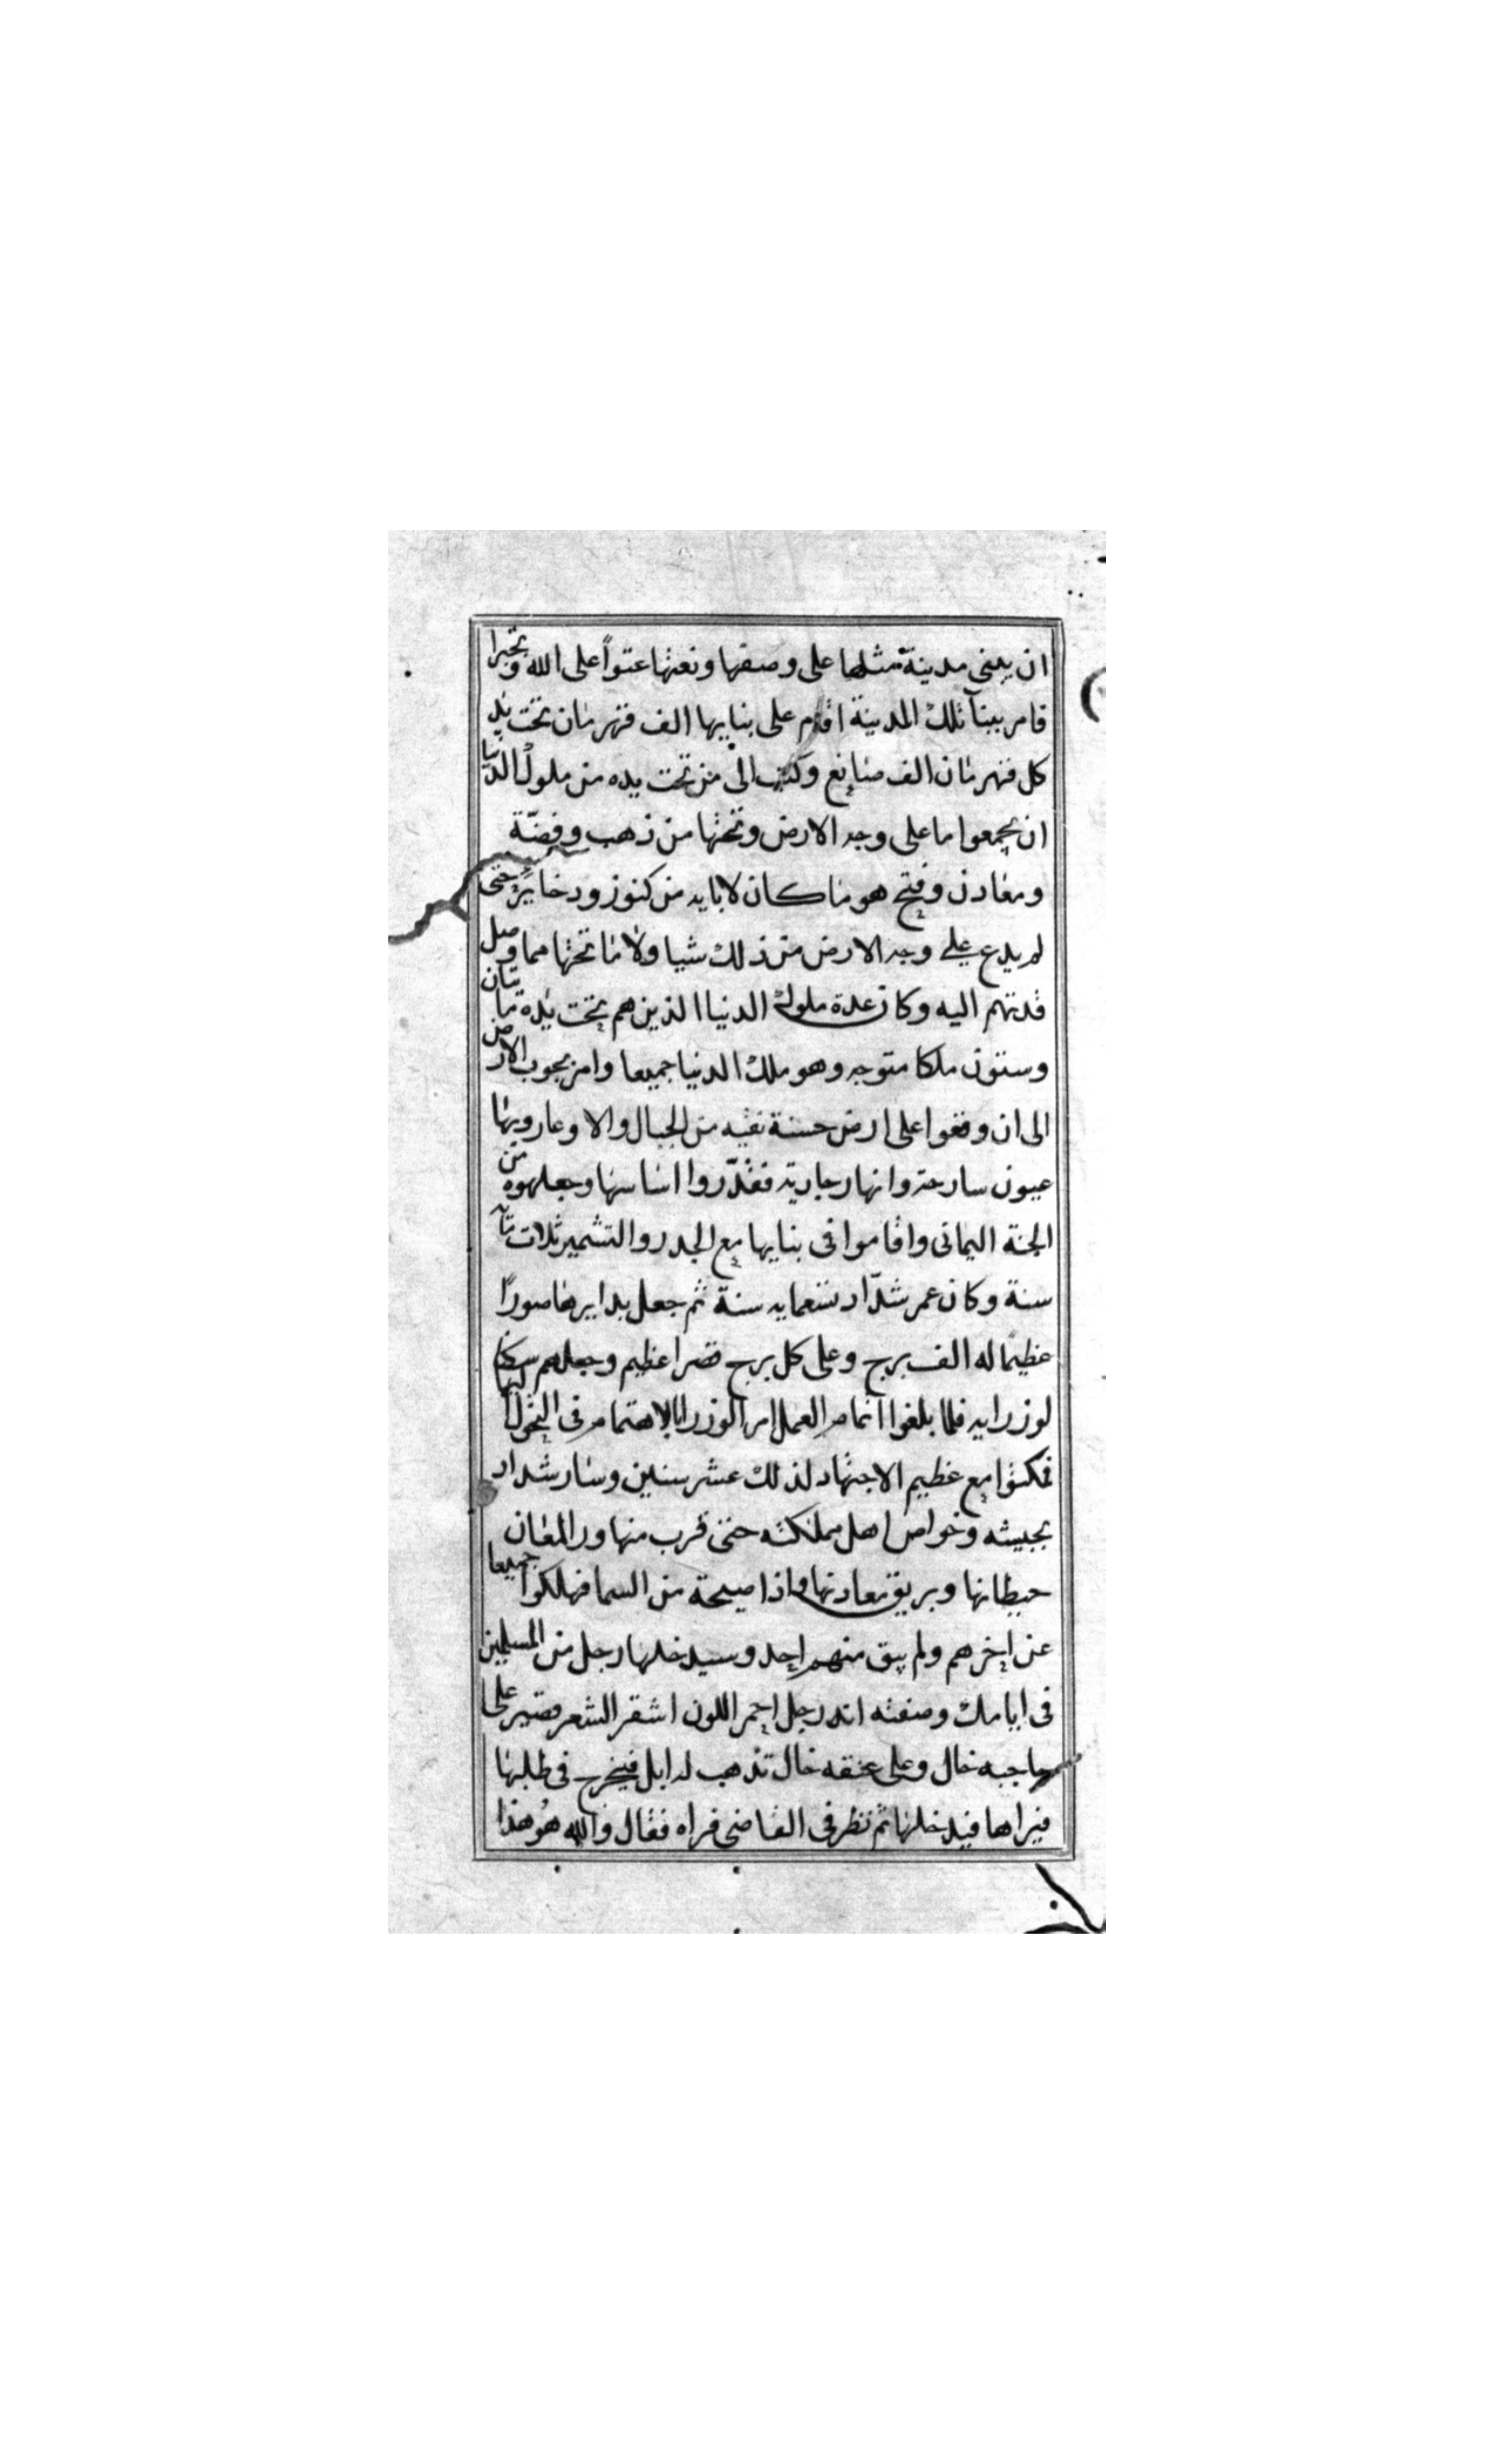 ان يبني مدينة مثلها على وصفها ونعتها عتواً على الله وتجبرا
فامر ببنآ تلك المدينة اقام على بنايها الف قهرمان تحت يد
كل قهرمان الف صانع وكتب الى من تحت يده من ملوك الدنيا
ان يجمعوا ما على وجه الارض وتحتها من ذهب وفضّة
ومعادن وفتح هو ما كان لابايه من كنوز ودخاير حتى
لم يدع على وجه الارض من ذلك شيا ولا ما تحتها مما وصل
قدتهم اليه وكان عدة ملوك الدنيا الذين هم تحت يده مايتان
وستون ملكا متوجه وهو ملك الدنيا جميعا وامر بجوب الارض
الى ان وقعوا على ارض حسنة نقيه من الجبال والاوعار وبها
عيون سارحة وانهار جارية فقدّروا اساسها وجعلوه من
الجنة اليمانى واقاموا فى بنايها مع الجدر والتشمير ثلاث مأه
سنة وكان عمر شدّاد تسعمايه سنة ثم جعل بدايرها صوراً
عظيماً له الف برج وعلى كل برج قصرا عظيم وجعلهم سكنا
لوزرايه فلما بلغوا اتمام العمل امر الوزرا بالاهتمام فى التحول اليها
فمكثوا مع عظيم الاجتهاد لذلك عشر سنين وسار شداد
بجيشه وخواص اهل مملكته حتى قرب منها ورا لمعان
حيطانها وبريق معادنها واذا صيحة من السما فهلكوا جميعا
عن اخرهم ولم يبق منهم احد وسيدخلها رجل من المسلمين
فى ايامك وصفته انه رجل احمر اللون اشقر الشعر قصير على
حاجبه خال وعلى عنقه خال تذهب له ابل فيخرج فى طلبها
فيراها فيدخلها ثم نظر فى القاضى فراه فقال والله هُو هذا